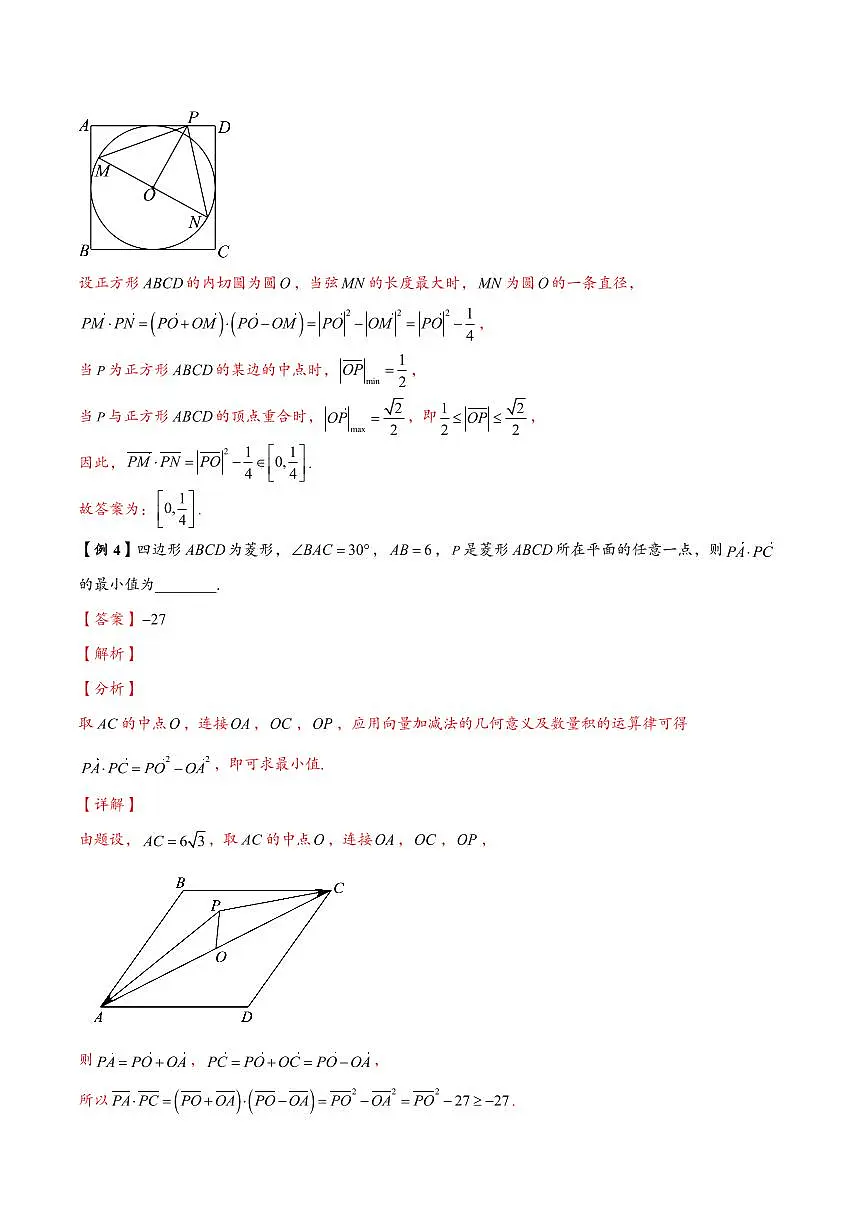 A P D
M
O
N
B C
设正方形 ABCD 的内切圆为圆 O，当弦 MN 的长度最大时，MN 为圆 O 的一条直径，
PM·PN = (PO+OM)·(PO−OM) = |PO|² − |OM|² = |PO|² − 1/4，
当 P 为正方形 ABCD 的某边的中点时，|OP|min = 1/2，
当 P 与正方形 ABCD 的顶点重合时，|OP|max = √2/2，即 1/2 ≤ |OP| ≤ √2/2，
因此，PM·PN = |PO|² − 1/4 ∈ [0, 1/4].
故答案为：[0, 1/4].
【例 4】四边形 ABCD 为菱形，∠BAC = 30°，AB = 6，P 是菱形 ABCD 所在平面的任意一点，则 PA·PC
的最小值为________.
【答案】−27
【解析】
【分析】
取 AC 的中点 O，连接 OA，OC，OP，应用向量加减法的几何意义及数量积的运算律可得
PA·PC = PO² − OA²，即可求最小值.
【详解】
由题设，AC = 6√3，取 AC 的中点 O，连接 OA，OC，OP，
B C
P
O
A D
则 PA = PO + OA，PC = PO + OC = PO − OA，
所以 PA·PC = (PO+OA)·(PO−OA) = PO² − OA² = PO² − 27 ≥ −27.